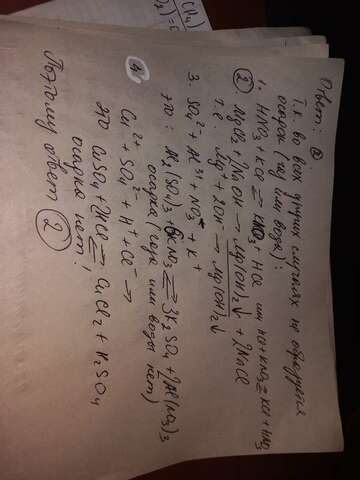 Ответ: ②
Т.к. во всех других случаях не образуется
осадок (газ или вода):
1. HNO3 + KCl ⇄ KNO3 + HCl или HCl + KNO3 ⇄ KCl + HNO3
② MgCl2 + 2NaOH → Mg(OH)2↓ + 2NaCl
т.е. Mg⁺ + 2OH⁻ → Mg(OH)2↓
3. SO4²⁻ + Al³⁺ + NO3⁻ + K⁺
это: Al2(SO4)3 + 6KNO3 ⇄ 3K2SO4 + 2Al(NO3)3
осадка (газа или воды нет)
④ Cu²⁺ + SO4²⁻ + H⁺ + Cl⁻ →
это CuSO4 + 2HCl ⇄ CuCl2 + H2SO4
осадка нет!
Поэтому ответ ②